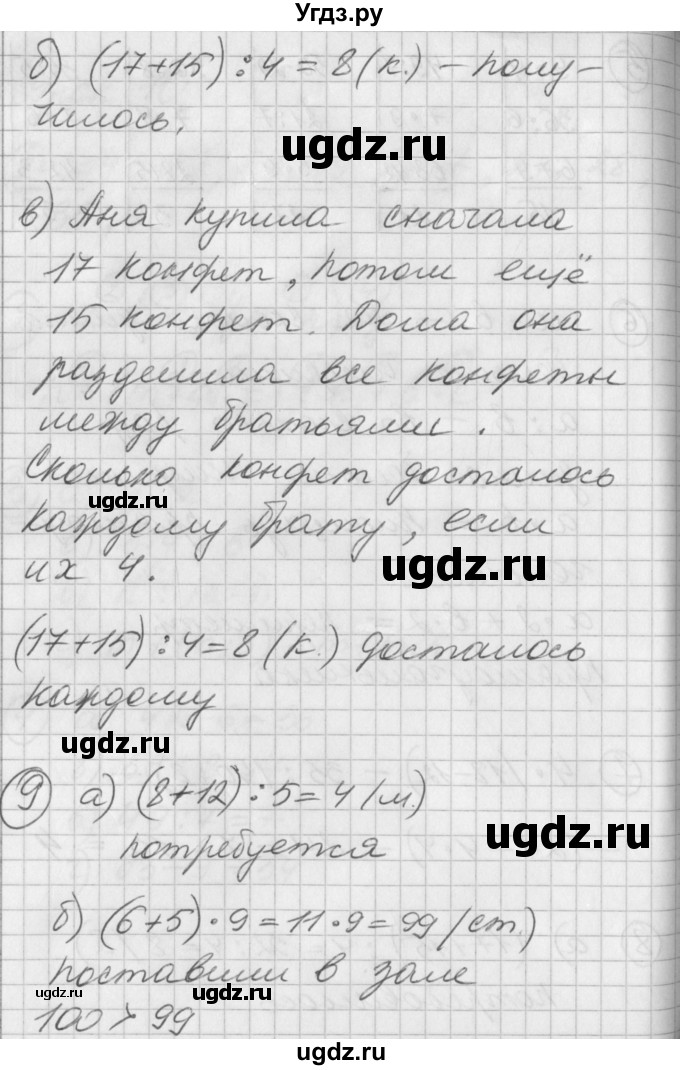 Угдз.ру
б) (17+15):4=8(к.) – полу-
чилось.
ugdz.ru
в) Аня купила сначала
17 конфет, потом ещё
15 конфет. Дома она
разделила все конфеты
между братьями.
Сколько конфет досталось
ugdz.ru
каждому брату, если
их 4.
ugdz.ru
(17+15):4=8(к.) досталось
каждому
ugdz.ru
9 а) (8+12):5=4(м.)
потребуется
ugdz.ru
б) (6+5)·9=11·9=99(ст.)
поставили в зале
ugdz.ru ugdz.ru
100>99
ugdz.ru